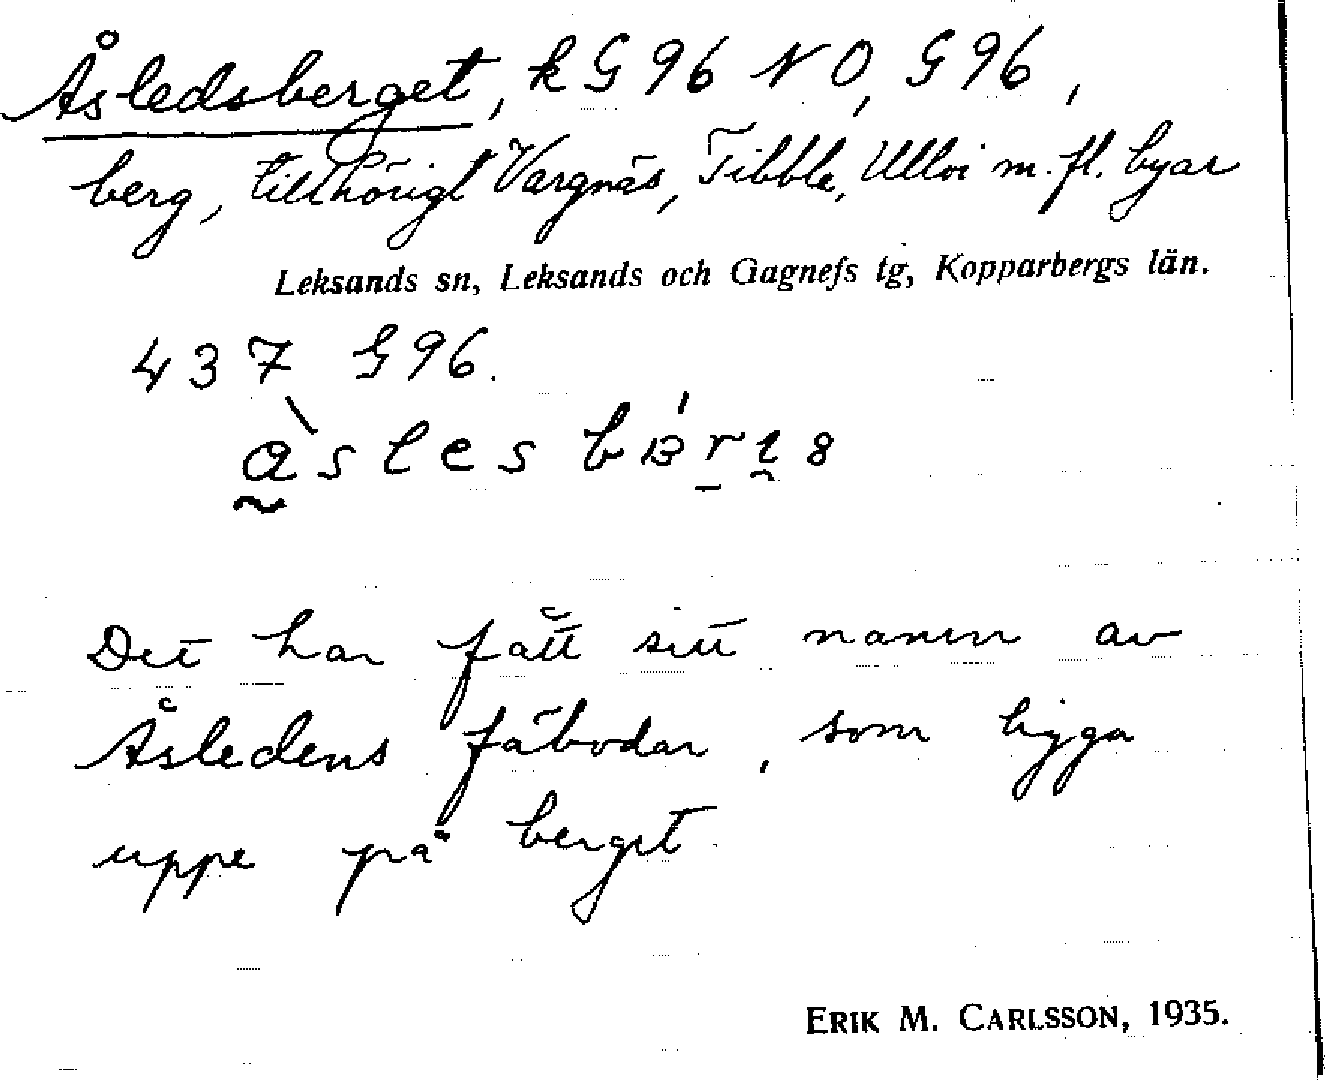 Åsledsberget, k G 96 NO, G 96,
berg, tillhörigt Vargnäs, Tibble, Ullvi m. fl. byar
Leksands sn, Leksands och Gagnefs tg, Kopparbergs län.
437 G 96.
Det har fått sitt namn av
Åsledens fäbodar, som ligga
uppe på berget.
ERIK M. CARLSSON, 1935.